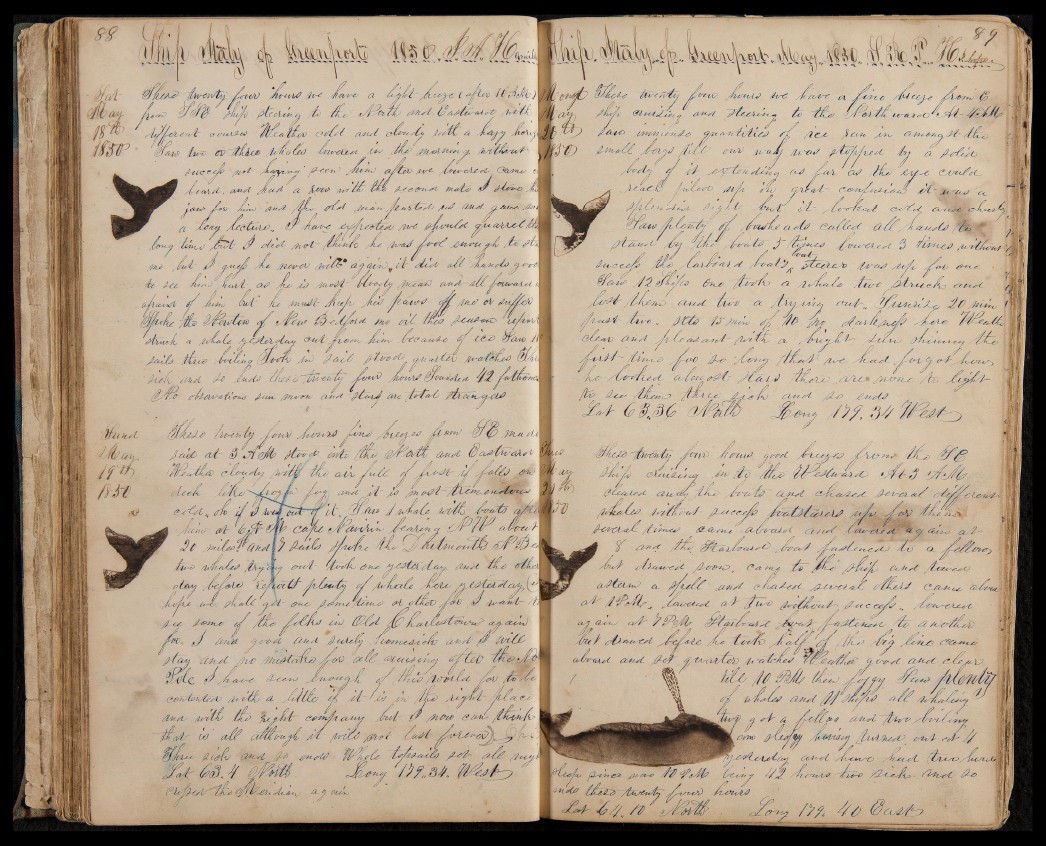 88
Ship Italy of Greenport 1850
Sat
May
18th
1850
These twenty four hours we have a light breeze after 10
from SSE ship steering to the North and Eastward with
different courses Weather cold and cloudy with a hazy
Saw two or three whales lowered in the morning without
success not having seen him after we lowered came
board and had a row with the second mate I
jaw for him and the old man parted us and gave
a long lecture. I have expected we should quarrel this
long time but I did not think he was fool enough to
me but I guess he never will again it did all hands good
to see him hurt, as he is most bloody mean and all forward
afraid of him but he must keep his paws off me or suffer
Spoke the Newton of New Bedford no oil this season
struck a whale yesterday cut from him because of ice Saw
sails three boiling Took in sail stood quarter watches
sick and so ends these twenty four hours Sounded 42 fathoms
No observation sun moon and stars are total strangers
Sund
May
19th
1850
These twenty four hours fine breezes from SE made
sail at 3 AM stood into the North and Eastward
Weather cloudy with the air full of frost it falls on
deck like frozen fog and it is most tremendous
cold, Saw 1 whale with boats after
him at 6 cape Navirin bearing NW about
20 miles and 7 sails spoke the Dartmouth
two whales trying out took one yesterday and the other
day before reports plenty of whale here yesterday
hope we shall get one sometime or other for I want
see some of the folks in Old Charlestown again
for I am good and surely homesick and I will
stay and no mistake for all cruising after the
Pole I have seen enough of this world for to be
contented with a little if it is in the right place
and with the right company but I now can think
that is all although it will not last forever
Three sick and so ends Whole topsails set all
Lat 63.4 North Long 179.34 West
crossed the Meridian again
89
Ship Italy of Greenport May 1850
Mond
May
20th
1850
These twenty four hours we have a fine breeze from E
ship cruising and steering to the Northward At
Saw immense quantities of ice run in amongst the
small bergs till our way was stopped by a solid
body of it extending as far as the eye could
reach piled up in great confusion it was a
splendid sight but it looked cold and
Saw plenty of bowheads called all hands to
stand by the boats 5 times lowered 3 times without
success the larboard boat steerer was up for one
Saw 12 ships one took a whale two struck and
lost them and two a trying out. Sunrise 20 min
past two. sets 15 min of 10 no darkness here Weather
clear and pleasant with a bright sun shining the
first time for so long that we had forgot how
he looked almost Stars there are none to light
to see them three sick and so ends
Lat 63.36 North Long 179.34 West
Tues
May
21th
1850
These twenty four hours good breezes from the SE
Ship cruising in to the Westward At 3 AM
cleared away the boats and chased several different
whales without success boatsteerers up for them
several times came aboard and lowered again at
8 and the Starboard boat fastened to a fellow
but drawed soon, came to the ship and towed
astern a spell and chased several others came aboard
at 1 PM. lowered at two without success. lowered
again at 7 PM Starboard boat fastened to another
but drawed before he took half of the big line came
aboard and set quarter watches Weather good and clear
till 10 PM then foggy Saw plenty
of whales and 11 ships all whaleing
two got a fellow and two boiling
am sleepy having turned out at 4
yesterday and have had two hours
sleep since now 10 PM being 42 hours two sick and so
ends these twenty four hours
Lat 64.10 North Long 179.40 East